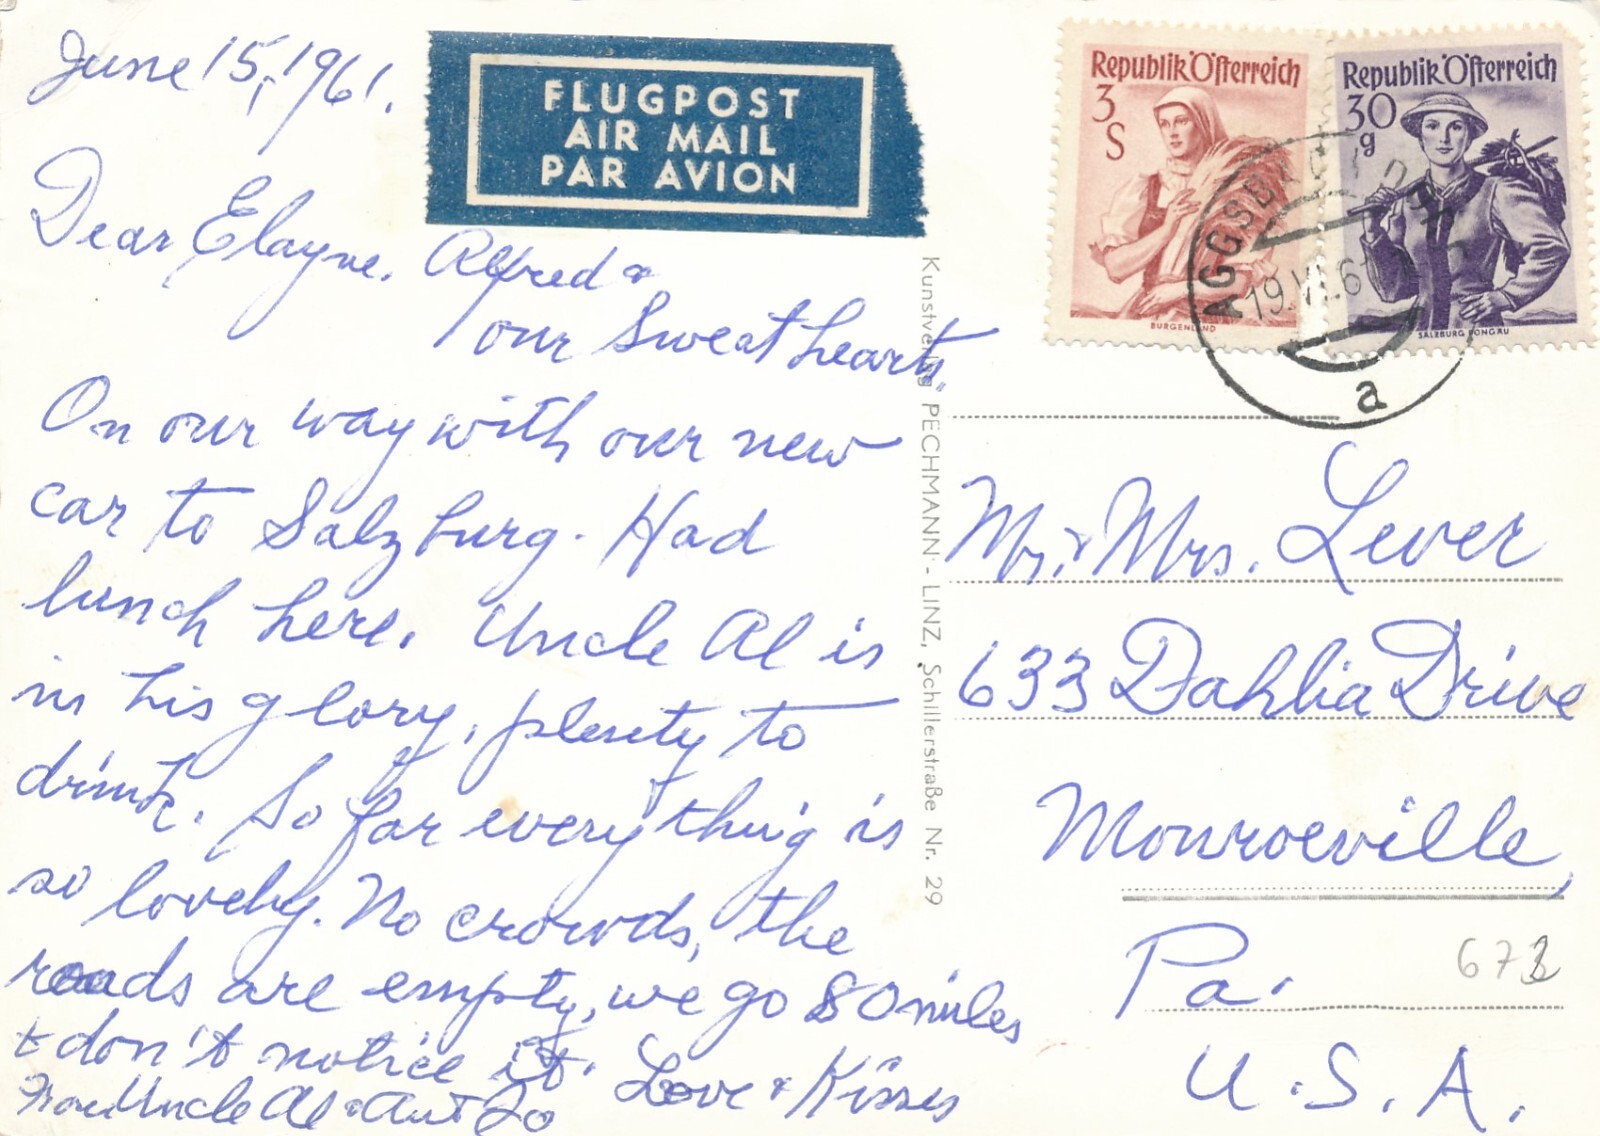 June 15, 1961.
Dear Elayne, Alfred &
our Sweat hearts,
On our way with our new
car to Salzburg. Had
lunch here. Uncle Al is
in his glory, plenty to
drink. So far everything is
so lovely. No crowds, the
roads are empty, we go 80 miles
& don't notice it. Love & Kisses
From Uncle Al & Aunt Jo
FLUGPOST
AIR MAIL
PAR AVION
Kunstverlag PECHMANN - LINZ, Schillerstraße Nr. 29
Republik Österreich
3
S
BURGENLAND
Republik Österreich
30
g
SALZBURG PONGAU
AGGSBACH
19.VI.61
a
Mr. & Mrs. Lever
633 Dahlia Drive
Monroeville,
Pa.
U.S.A.